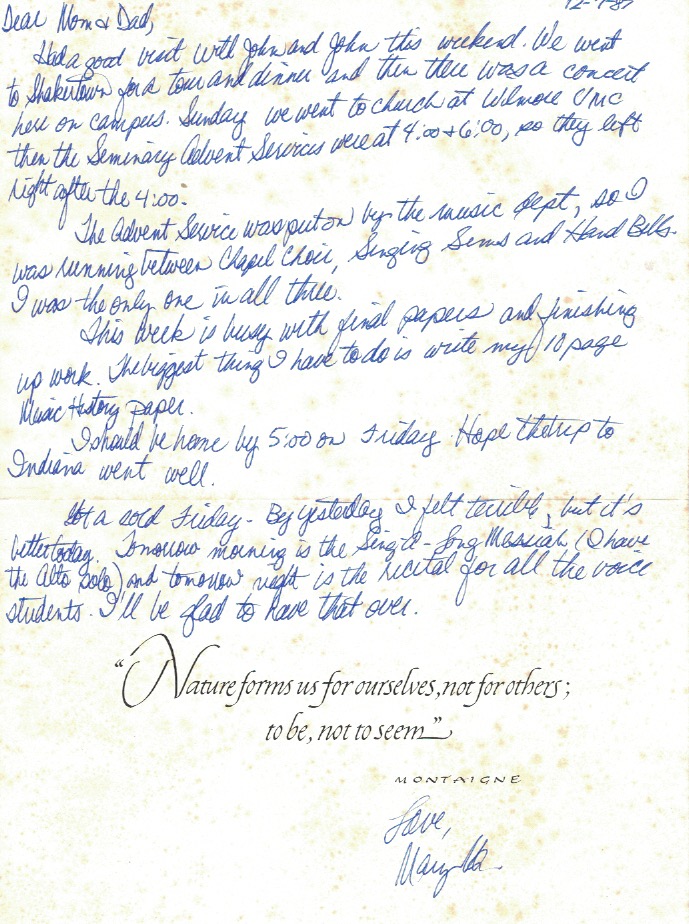 12-7-87
Dear Mom & Dad,
Had a good visit with John and John this weekend. We went
to Shakertown for a tour and dinner and then there was a concert
here on campus. Sunday we went to church at Wilmore UMC
then the Seminary Advent Services were at 4:00 & 6:00, so they left
right after the 4:00.
The Advent Service was put on by the music dept, so I
was running between Chapel Choir, Singing Sems and Hand Bells.
I was the only one in all three.
This week is busy with final papers and finishing
up work. The biggest thing I have to do is write my 10 page
Music History paper.
I should be home by 5:00 on Friday. Hope the trip to
Indiana went well.
Got a cold Friday - By yesterday I felt terrible, but it's
better today. Tomorrow morning is the Sing-a-long Messiah (I have
the Alto Solo) and tomorrow night is the recital for all the voice
students. I'll be glad to have that over.
"Nature forms us for ourselves, not for others;
to be, not to seem"
MONTAIGNE
Love,
Mary